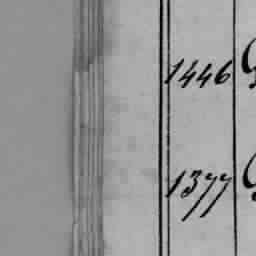 1446
1377